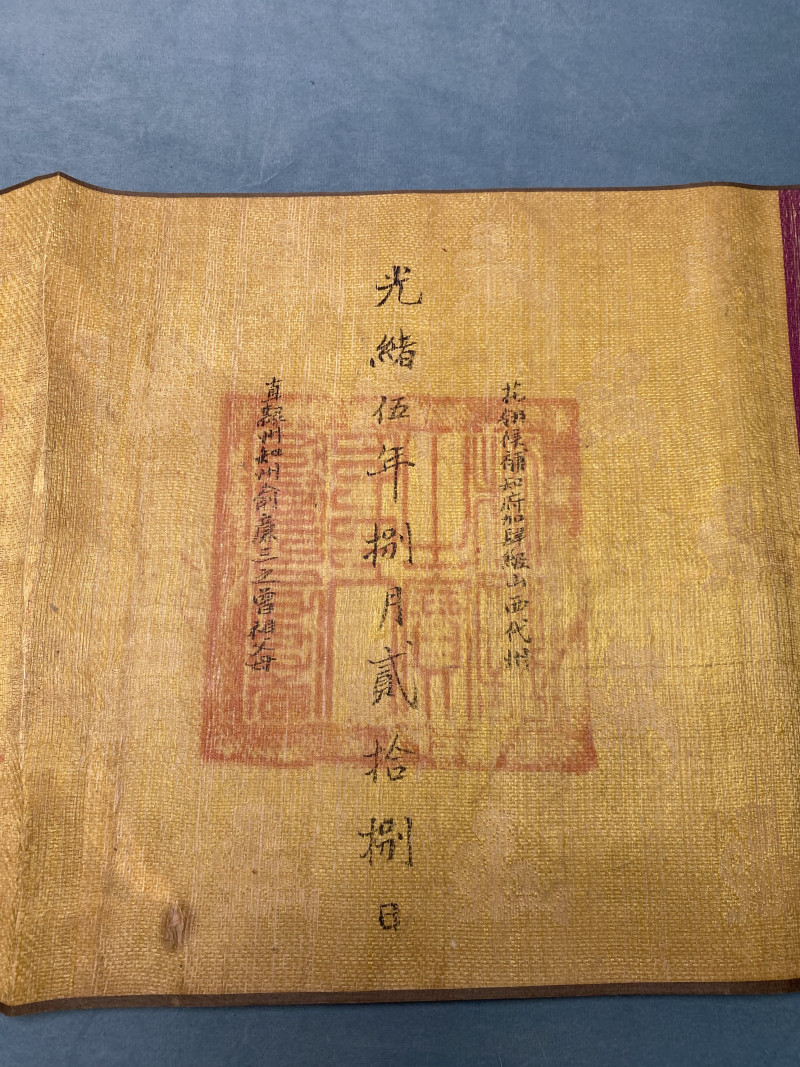 花翎候補知府加肆級山西代州
光緒伍年捌月貳拾捌日
直隸州知州俞廉三之曾祖父母